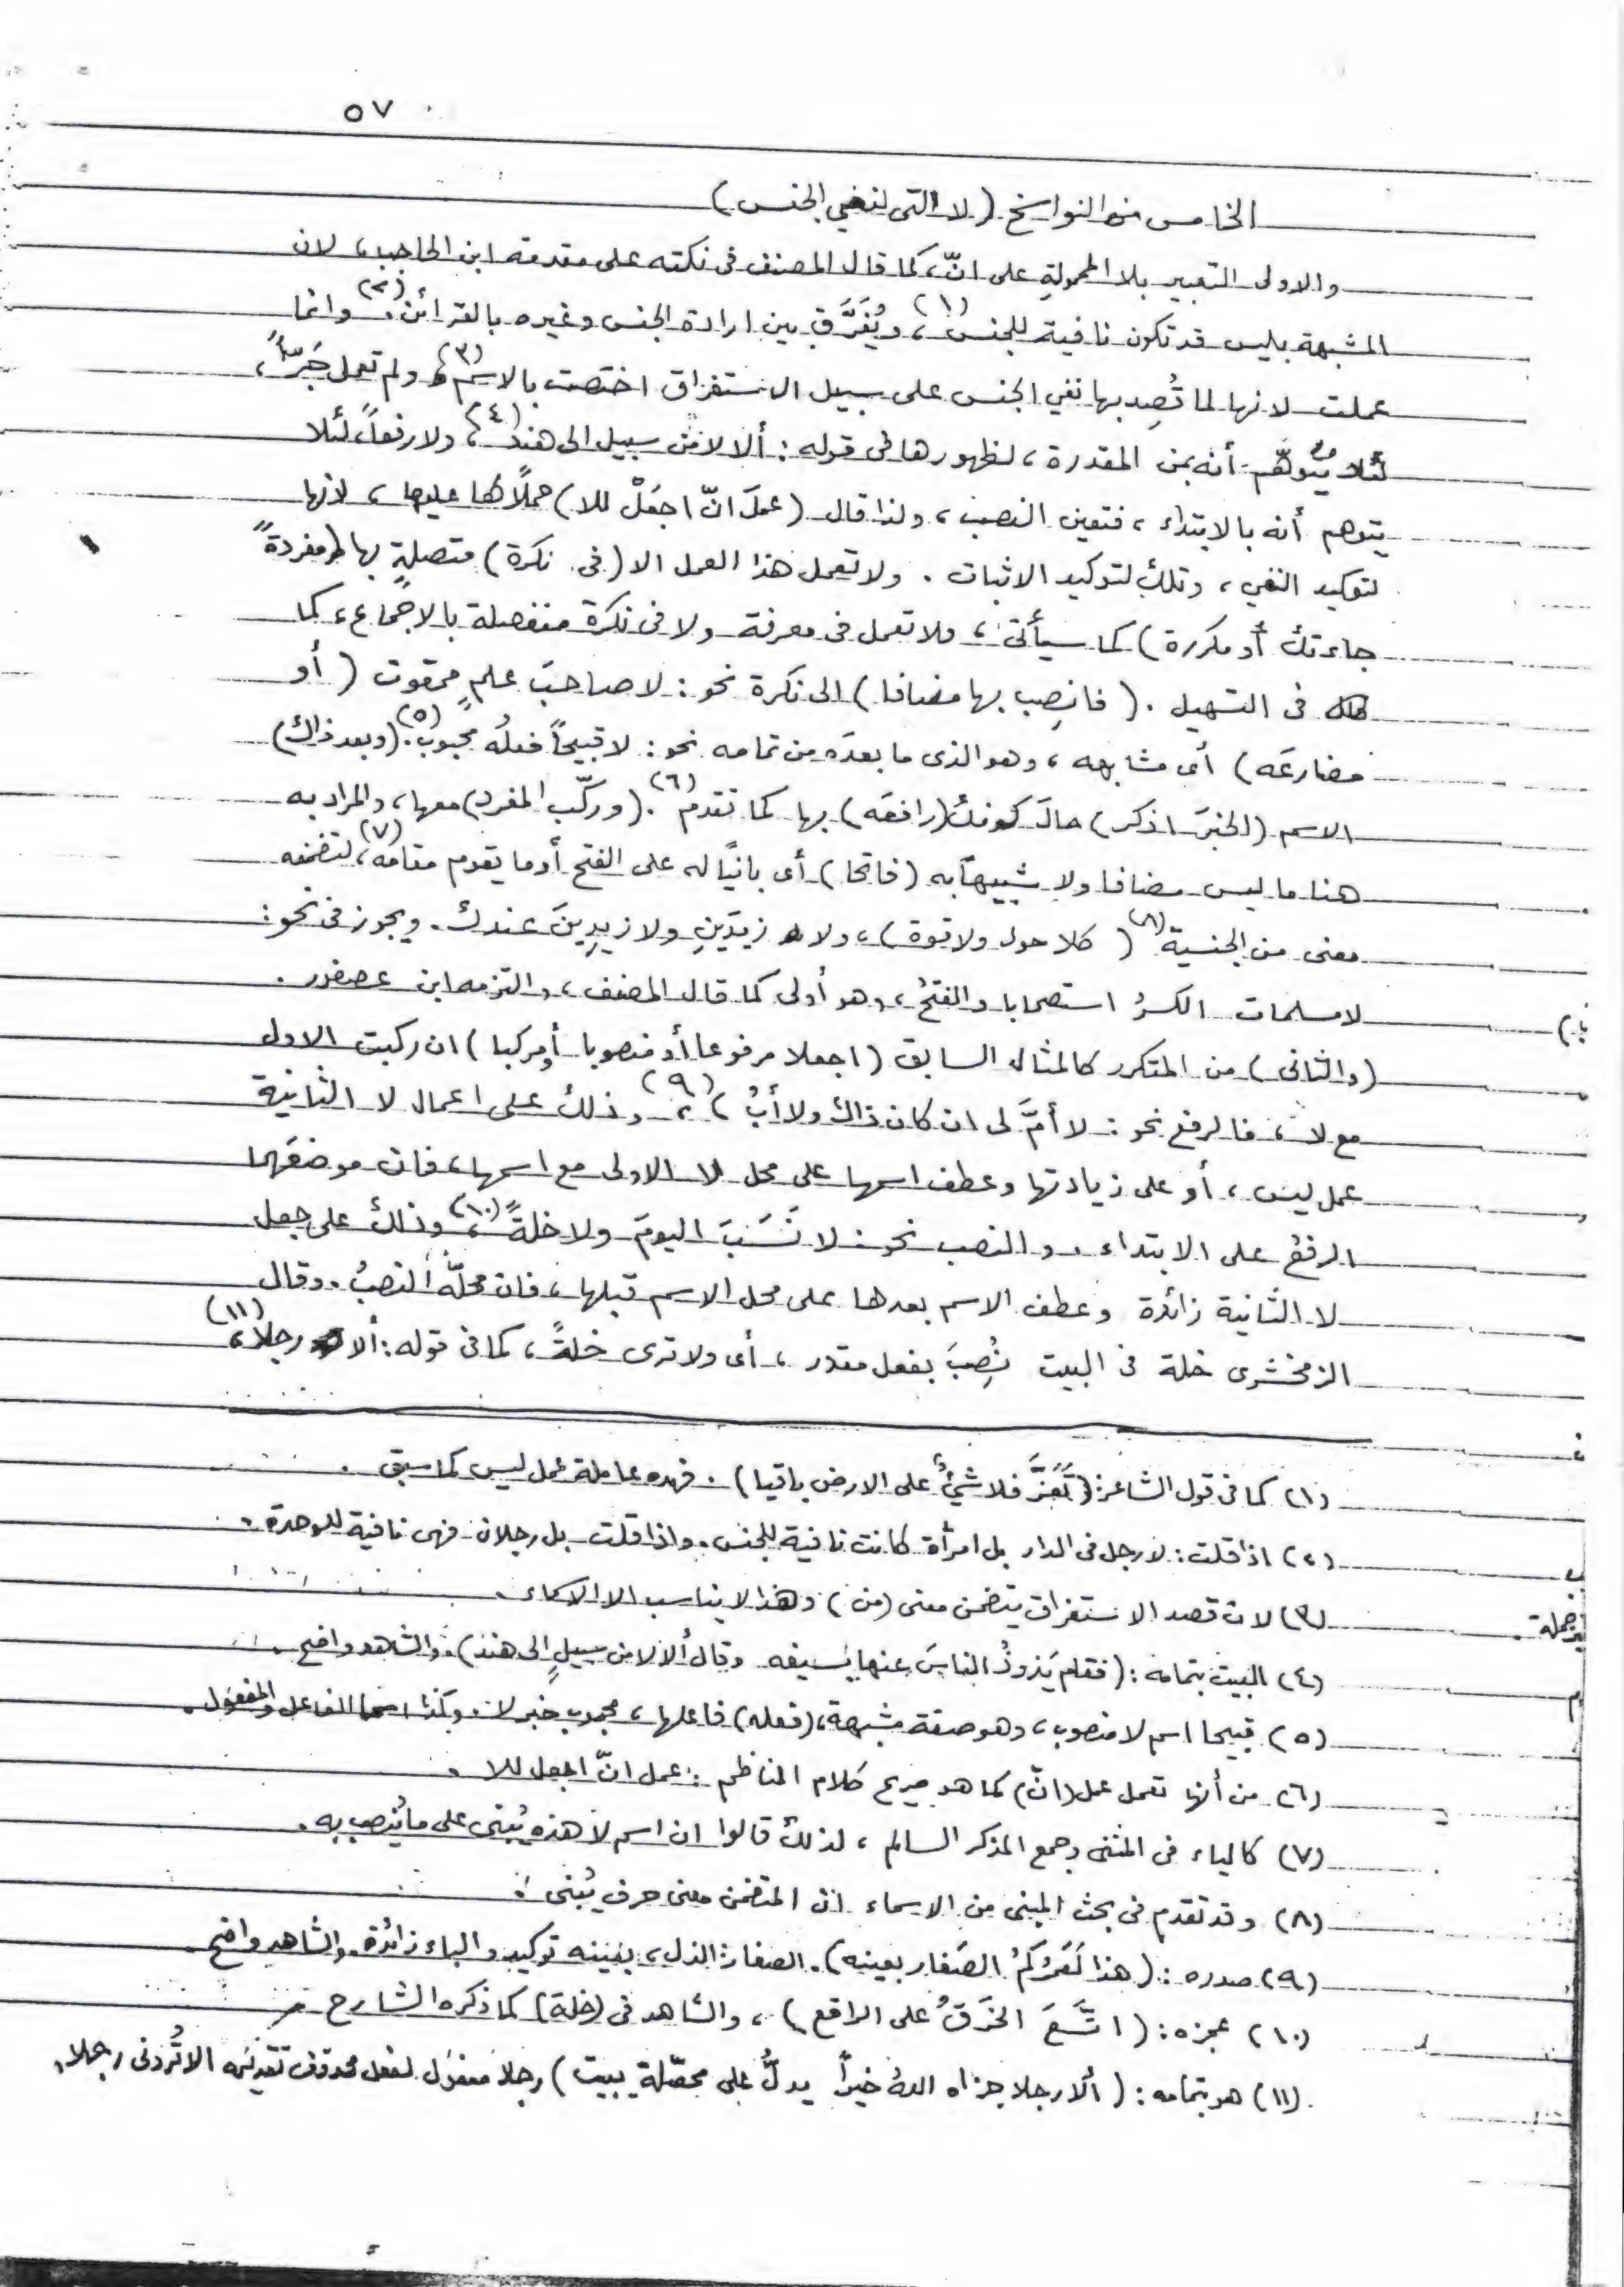 ٥٧
الخامس من النواسخ (لا التى لنفي الجنس)
والاولى التعبير بلا المحمولةِ على انّ، كما قال المصنف فى نكته على مقدمة ابن الحاجب، لان
المشبهة بليس قد تكون نافية للجنس (١)، ويُفَرَّق بين ارادة الجنس وغيره بالقرائن (٢). وانما
عملت لانها لما قُصِد بها نفي الجنس على سبيل الاستغراق اختصت بالاسم (٣)، ولم تعمل جَرّاً،
لئلا يُتوهّم أنه بمن المقدرة، لظهورها فى قوله: ألا لا من سبيل الى هند (٤)، ولا رفعاً، لئلا
يتوهم أنه بالابتداء، فتعين النصب، ولذا قال (عملَ انّ اجعَلْ للا) حملاً لها عليها، لانها
لتوكيد النفي، وتلك لتوكيد الاثبات. ولا تعمل هذا العمل الا (فى نكرة) متصلةٍ بها (مفردةً
جاءتك أو مكررة) كما سيأتى، فلا تعمل فى معرفة ولا فى نكرة منفصلة بالاجماع، كما
فى التسهيل. (فانصِب بها مضافا) الى نكرة نحو: لا صاحبَ علمٍ ممقوت (أو
مضارعَه) أى مشابهه، وهو الذى ما بعدَه من تمامه نحو: لا قبيحاً فعلُه محبوب (٥). (وبعد ذاك)
الاسم (الخبرَ اذكر) حالَ كونك (رافعَه) بها كما تقدم (٦). (وركّب المفرد) معها، والمراد به
هنا ما ليس مضافا ولا شبيهاً به (فاتحا) أى بانيًا له على الفتح أو ما يقوم مقامه (٧)، لتضمنه
معنى من الجنسية (٨) (كلا حول ولا قوة)، ولا زيدَينِ ولا زيدِينَ عندك. ويجوز فى نحو:
لا مسلمات الكسرُ استصحابا والفتحُ، وهو أولى كما قال المصنف، والتزمه ابن عصفور.
(والثانى) من المتكرر كالمثال السابق (اجعلا مرفوعا أو منصوبا أو مركبا) ان ركبت الاول
مع لا، فالرفع نحو: لا أمَّ لى ان كان ذاك ولا أبُ) (٩)، وذلك على اعمال لا الثانية
عمل ليس، أو على زيادتها وعطف اسمها على محل لا الاولى مع اسمها، فان موضعَهما
الرفعُ على الابتداء، والنصب نحو: لا نَسَبَ اليومَ ولا خلةً (١٠)، وذلك على جعل
لا الثانية زائدة وعطف الاسم بعدها على محل الاسم قبلها، فان محلّه النصبُ. وقال
الزمخشرى خلة فى البيت نُصِبَ بفعل مقدر، أى ولا ترى خلةً، كما فى قوله: ألا رجلا (١١)،
(١) كما فى قول الشاعر: (تَعَزَّ فلا شيءٌ على الارض باقيا). فهده عاملة عمل ليس كما سبق.
(٢) اذا قلت: لا رجل فى الدار بل امرأة كانت نافية للجنس. واذا قلت بل رجلان فهى نافية للوحدة.
(٣) لان قصد الاستغراق يتضمن معنى (من) وهذا لا يناسب الا الاسماء.
(٤) البيت بتمامه: (فقام يَذودُ الناسَ عنها بسيفه وقال ألا لا من سبيلٍ الى هند). والشاهد واضح.
(٥) قبيحا اسم لا منصوب، وهو صفة مشبهة، (فعله) فاعلها، محبوب خبر لا. وكذا اسما الفاعل والمفعول.
(٦) من أنها تعمل عمل (انّ) كما هو صريح كلام الناظم: عمل انّ اجعل للا.
(٧) كالياء فى المثنى وجمع المذكر السالم، لذلك قالوا ان اسم لا هذه يُبنى على ما يُنصب به.
(٨) وقد تقدم فى بحث المبنى من الاسماء ان المتضمن معنى حرف يُبنى.
(٩) صدره: (هذا لَعَمْرُكُمُ الصَغار بعينه). الصغار: الذل، بعينه توكيد والباء زائدة. والشاهد واضح.
(١٠) عجزه: (اتَّسَعَ الخَرَقُ على الراقع)، والشاهد فى (خلة) كما ذكره الشارح.
(١١) هو بتمامه: (ألا رجلا جزاه اللهُ خيراً يدلُّ على محصّلةٍ يبيت) رجلا مفعول لفعل محذوف تقديره ألا تُرونى رجلا.